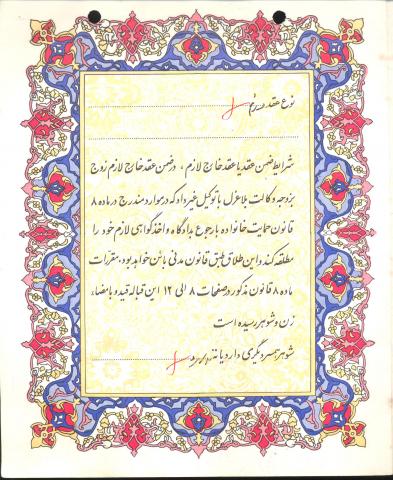 نوع عقد دائم
شرایط ضمن عقد یا عقد خارج لازم ، در ضمن عقد خارج لازم زوج
بزوجه وکالت بلاعزل با توکیل غیر داد که در موارد مندرج در ماده ۸
قانون حمایت خانواده با رجوع بدادگاه و اخذ گواهی لازم خود را
مطلقه کند و این طلاق طبق قانون مدنی بائن خواهد بود، مقررات
ماده ۸ قانون مذکور در صفحات ۸ الی ۱۲ این قباله قید و بامضاء
زن و شوهر رسیده است
شوهر همسر دیگری دارد یا نه